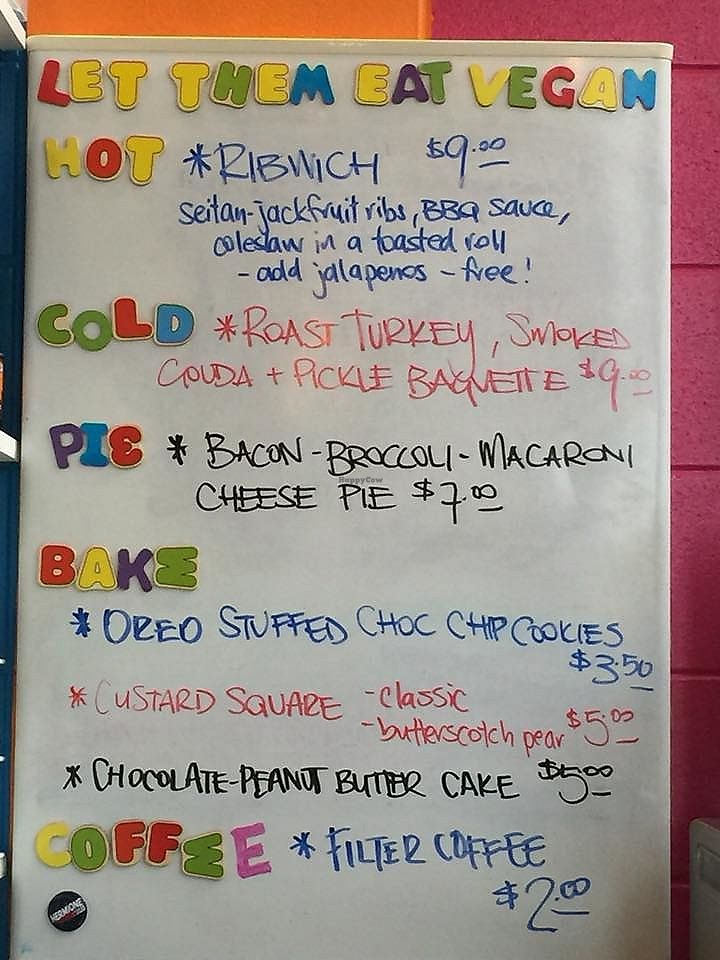 LET THEM EAT VEGAN
HOT *RIBWICH $9.00
seitan-jackfruit ribs, BBQ sauce,
coleslaw in a toasted roll
- add jalapenos - free!
COLD *ROAST TURKEY, SMOKED
GOUDA + PICKLE BAGUETTE $9.00
PIE * BACON-BROCCOLI-MACARONI
HappyCow
CHEESE PIE $7.00
BAKE
* OREO STUFFED CHOC CHIP COOKIES
$3.50
* CUSTARD SQUARE -classic
-butterscotch pear $5.00
* CHOCOLATE-PEANUT BUTTER CAKE $5.00
COFFEE * FILTER COFFEE
$2.00
HERMIONE